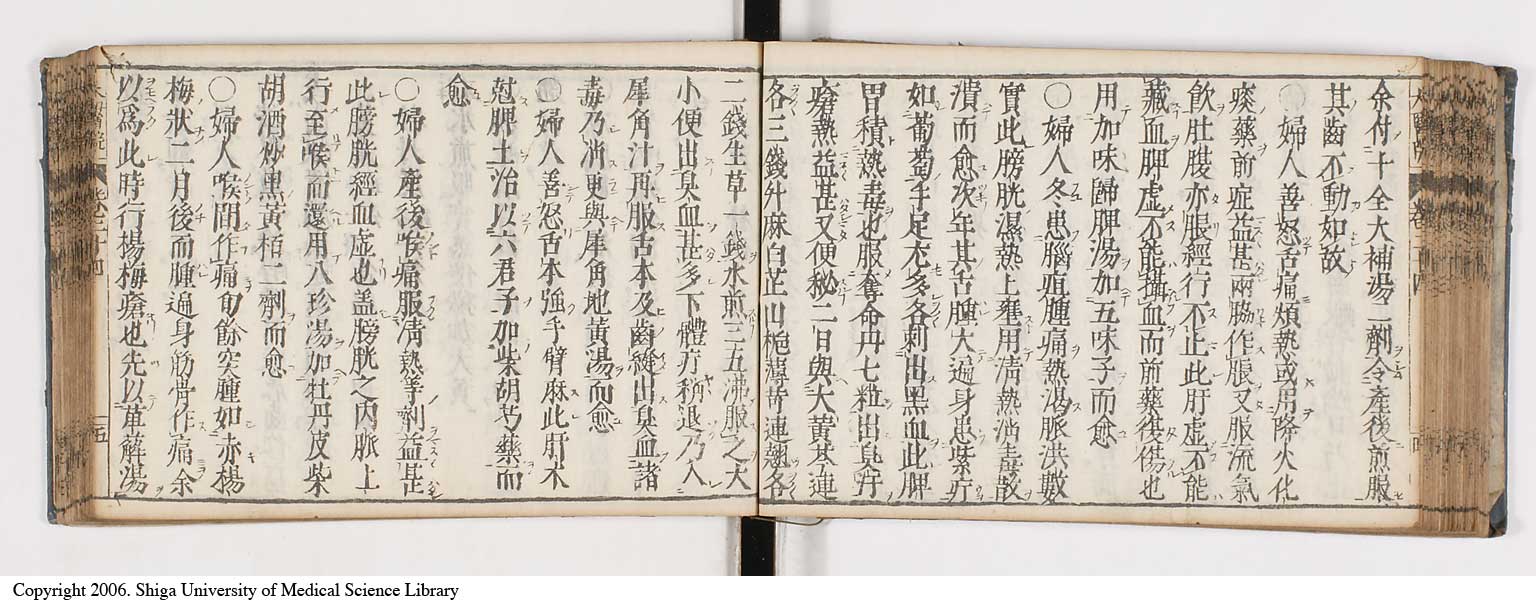 余付十全大補湯二劑令產後煎服
其齒不動如故
○婦人善怒舌痛煩熱或用降火化
痰藥前症益甚兩脇作脹又服流氣
飮肚腹亦脹經行不止此肝虛不能
藏血脾虛不能攝血而前藥復傷也
用加味歸脾湯加五味子而愈
○婦人冬患腦疽腫痛熱渴脈洪數
實此膀胱濕熱上壅用淸熱消毒散
潰而愈次年其舌腫大遍身患紫疔
如葡萄手足尤多各刺出黑血此脾
胃積熱毒也服奪命丹七粒出臭
熱益甚又便秘二日與大黃
各三錢升麻白芷山梔薄荷連翹各
二錢生草一錢水煎三五沸服之大
小便出臭血甚多下體疔稍退乃入
犀角汁再服舌本及齒縫出臭血諸
毒乃消更與犀角地黃湯而愈
○婦人善怒舌本強手臂麻此肝木
尅脾土治以六君子加柴胡芍藥而
愈
○婦人產後喉痛服淸熱等劑益甚
此膀胱經血虛也盖膀胱之內脈上
行至喉而還用八珍湯加牡丹皮柴
胡酒炒黑黃栢二劑而愈
○婦人喉間作痛旬餘突腫如赤楊
梅狀二月後而腫遍身筋骨作痛余
以爲此時行楊梅瘡也先以萆薢湯
卷二十四
十五
Copyright 2006. Shiga University of Medical Science Library